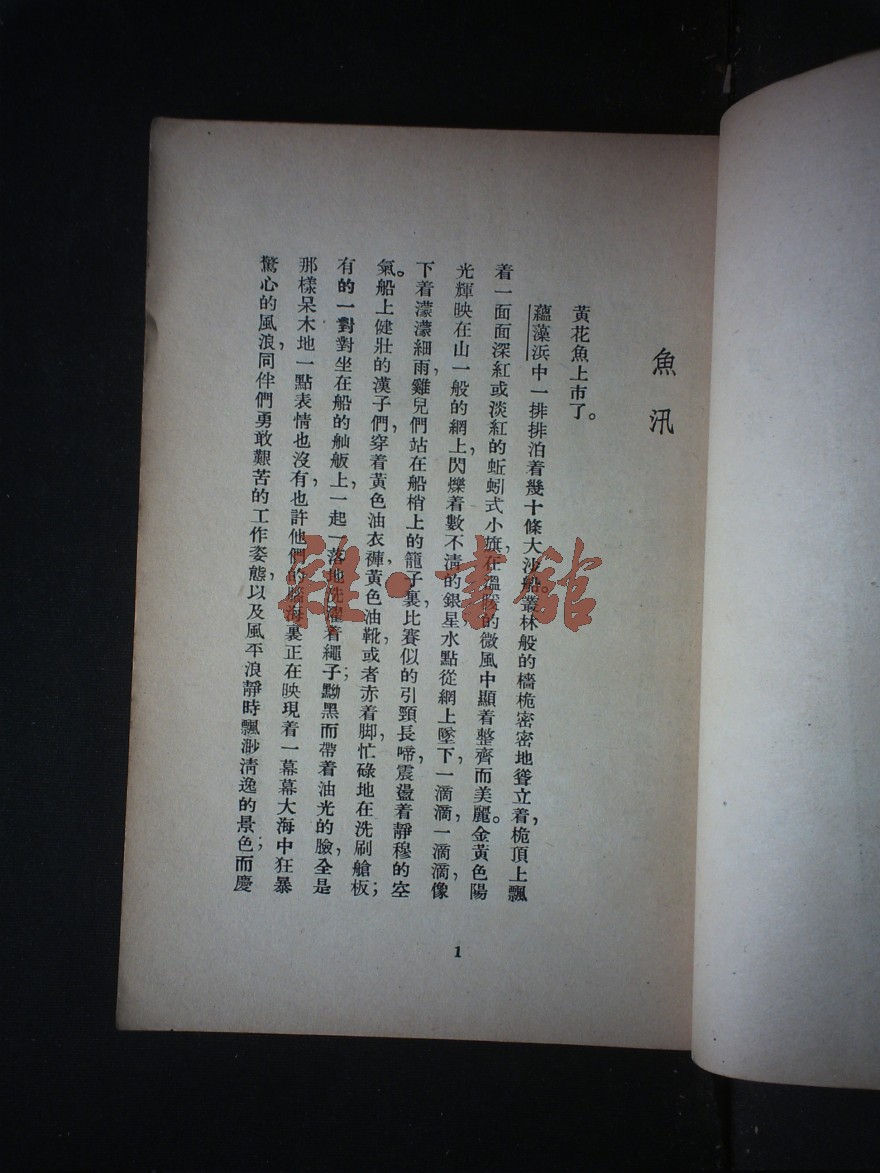 魚汛
黃花魚上市了。
蘊藻浜中一排排泊着幾十條大沙船。叢林般的檣桅密密地聳立着，桅頂上飄
着一面面深紅或淡紅的蚯蚓式小旗，在溫暖的微風中顯着整齊而美麗。金黃色陽
光輝映在山一般的網上，閃爍着數不清的銀星水點從網上墜下，一滴滴，一滴滴，像
下着濛濛細雨，雞兒們站在船梢上的籠子裏比賽似的引頸長啼，震盪着靜穆的空
氣。船上健壯的漢子們，穿着黃色油衣褲，黃色油靴，或者赤着脚，忙碌地在洗刷艙板；
有的一對對坐在船的舢舨上，一起一落地洗濯着繩子；黝黑而帶着油光的臉，全是
那樣呆木地一點表情也沒有，也許他們的腦海裏正在映現着一幕幕大海中狂暴
驚心的風浪，同伴們勇敢艱苦的工作姿態，以及風平浪靜時飄渺清逸的景色；而慶
1
雜·書館